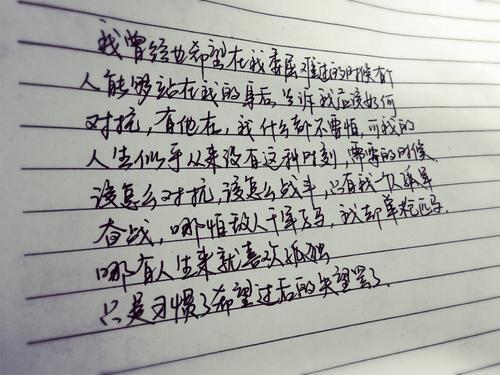 我曾经也希望在我委屈难过的时候有个
人能够站在我的身后,告诉我应该如何
对抗,有他在,我什么都不需怕,可我的
人生似乎从来没有这种时刻,需要的时候
该怎么对抗,该怎么战斗,只有我一个人孤军
奋战,哪怕敌人千军万马,我却单枪匹马.
哪有人生来就喜欢孤独
只是习惯了希望过后的失望罢了.